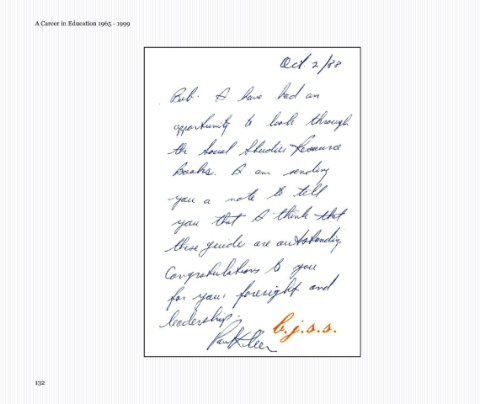 A Career in Education 1965 - 1999
Oct 2/88
Bob. I have had an
opportunity to look through
the Social Studies Resource
Books. I am sending
you a note to tell
you that I think that
these guides are outstanding
Congratulations to you
for your foresight and
leadership.
b.j.s.s.
132